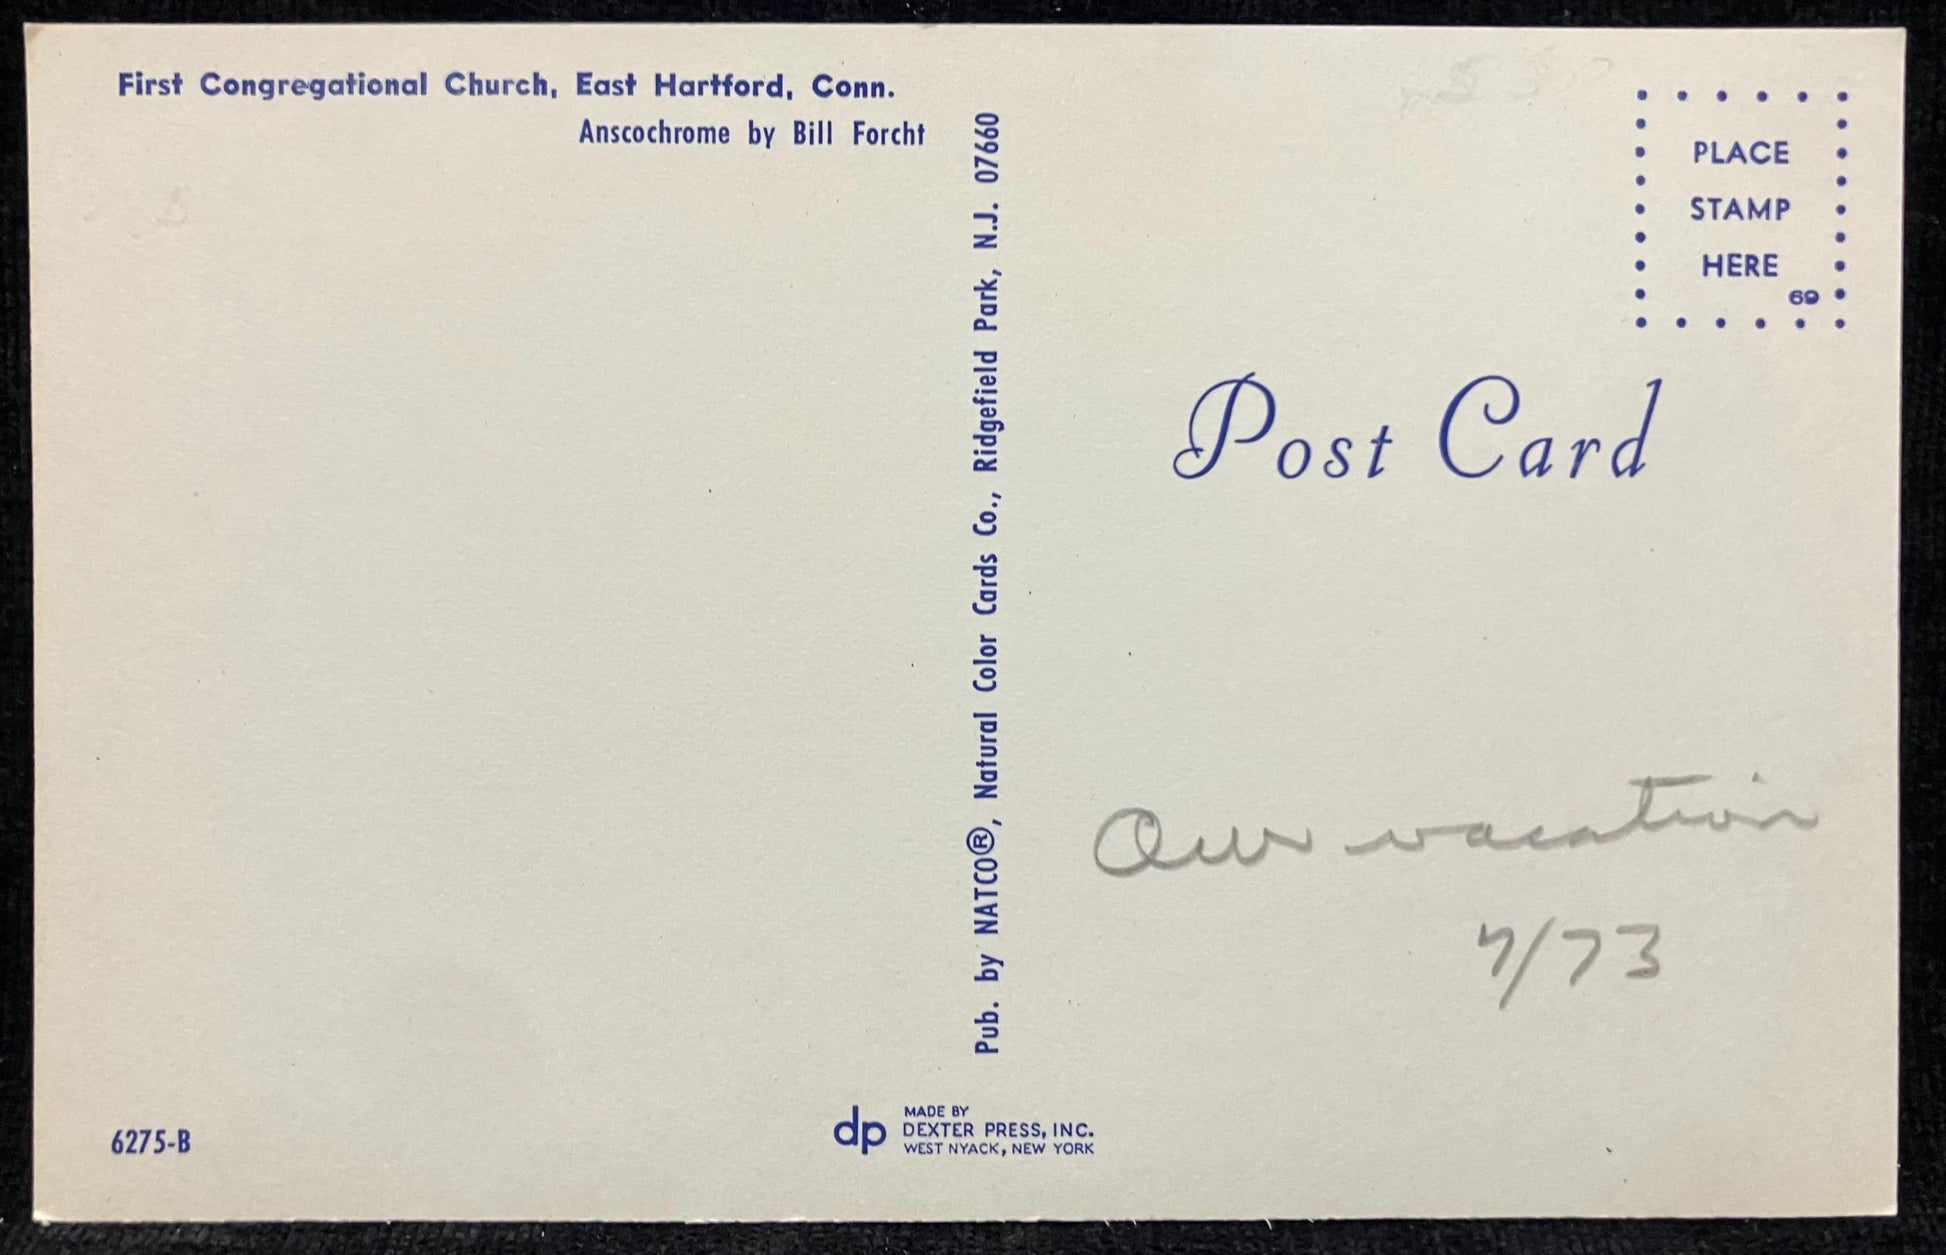 First Congregational Church, East Hartford, Conn.
Anscochrome by Bill Forcht
Pub. by NATCO®, Natural Color Cards Co., Ridgefield Park, N.J. 07660
PLACE
STAMP
HERE
69
Post Card
Our vacation
7/73
6275-B
dp
MADE BY
DEXTER PRESS, INC.
WEST NYACK, NEW YORK